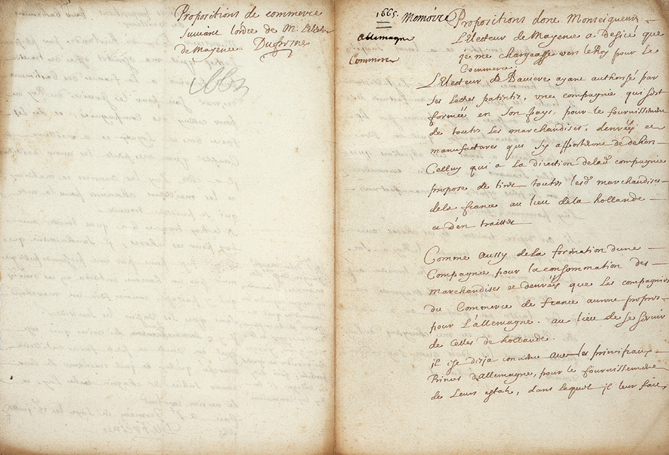 Propositions de commerce
suivant lordre de Mr. l'Elect.
de Mayence Dufresne
1665. Memoire
Allemagne
Commerce
Propositions dont Monseigneur
L'Electeur de Mayence a desiré que
je me chargeasse vers le Roy pour le
Commerce.
L'Electeur de Baviere ayant authorisé par
ses lettres patentes, une compagnie qui s'est
formée en son pays, pour le fournissement
de toutes les marchandises, denrées et
manufactures que s'y apportent de dehors
Celluy qui a la direction de lad. compagnie
propose de tirer toutes lesd. marchandises
de la france au lieu de la hollande
et d'en traitter
Comme aussy de la formation d'une
Compagnie pour la consommation des
marchandises et denrées que les compagnies
du Commerce de France auront propres
pour L'allemagne. au lieu de se servir
de celles de hollande.
il est desja convenu avec les principaux
Princes d'allemagne, pour le fournissement
de Leurs estats, dans lequel il leur fait